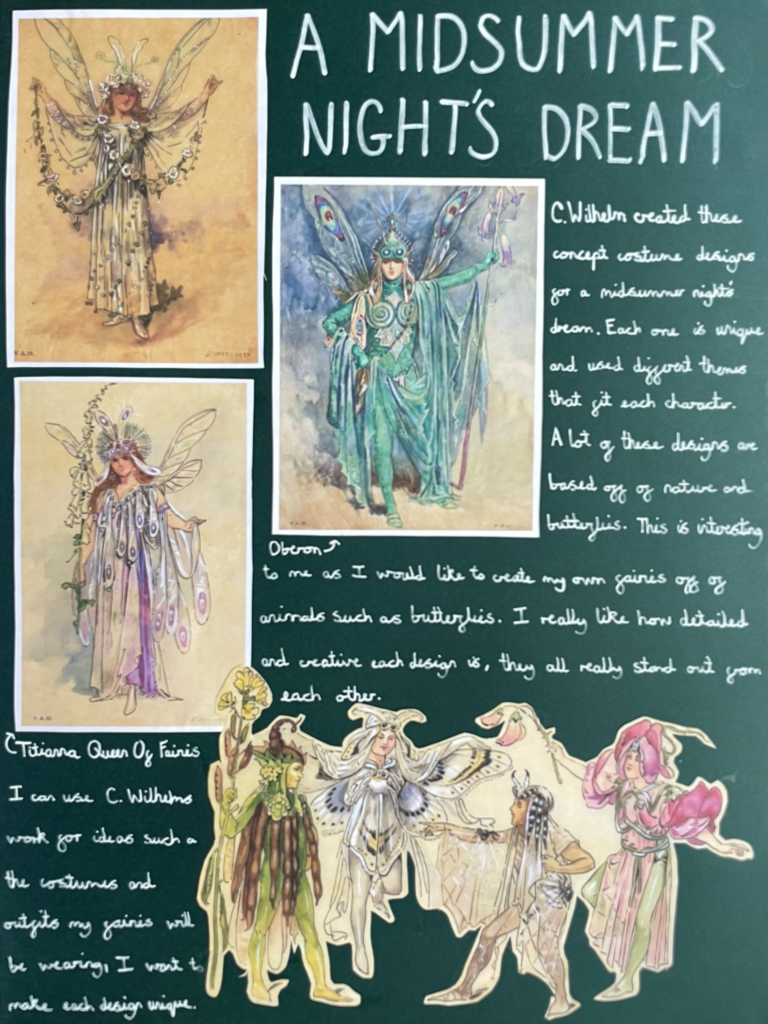 A MIDSUMMER
NIGHT'S DREAM
C.Wilhelm created these
concept costume designs
for a midsummer night's
dream. Each one is unique
and used different themes
that fit each character.
A lot of these designs are
based off of nature and
butterflies. This is interesting
to me as I would like to create my own fairies off of
animals such as butterflies. I really like how detailed
and creative each design is, they all really stand out from
each other.
Oberon
Titianna Queen Of Fairies
I can use C. Wilhelms
work for ideas such a
the costumes and
outfits my fairies will
be wearing, I want to
make each design unique.
V.A.M.
V.A.M.